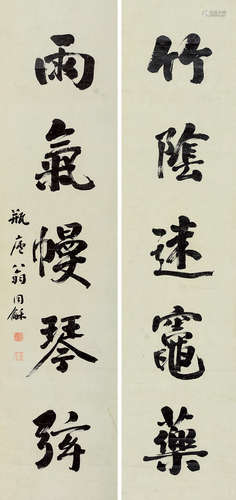 竹陰迷竈藥
雨氣慢琴弦
瓶廬翁同龢